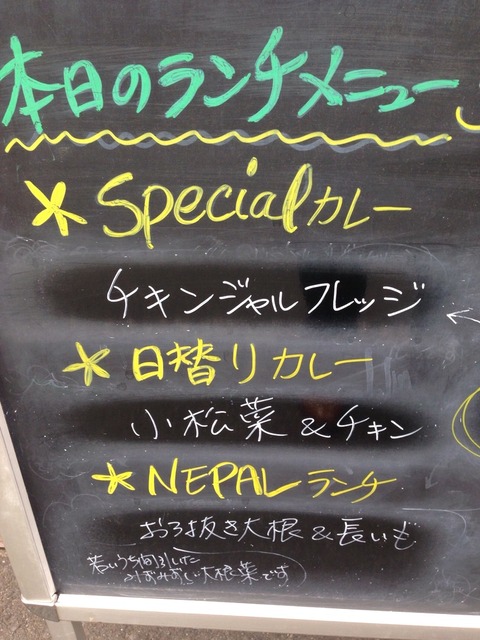 本日のランチメニュー
Specialカレー
チキンジャルフレッジ
日替りカレー
小松菜&チキン
NEPALランチ
おろ抜き大根&長いも
若いうちに間引した
大根菜です